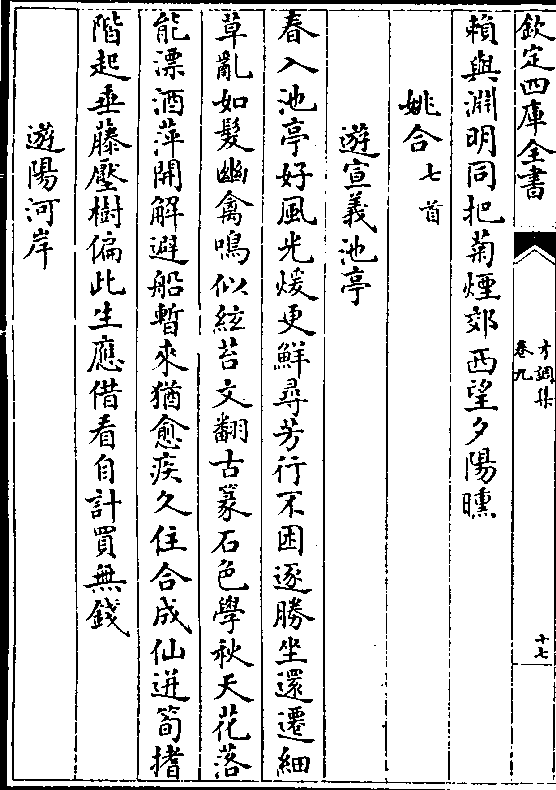 欽定四庫全書
才調集
卷九
十七
賴與淵明同把菊煙郊西望夕陽曛
姚合七首
遊宣義池亭
春入池亭好風光煖更鮮尋芳行不困逐勝坐還遷細
草亂如髮幽禽鳴似絃苔文翻古篆石色學秋天花落
能漂酒萍開解避船暫來猶愈疾久住合成仙迸筍揩
階起垂藤壓樹偏此生應借看自計買無錢
遊陽河岸